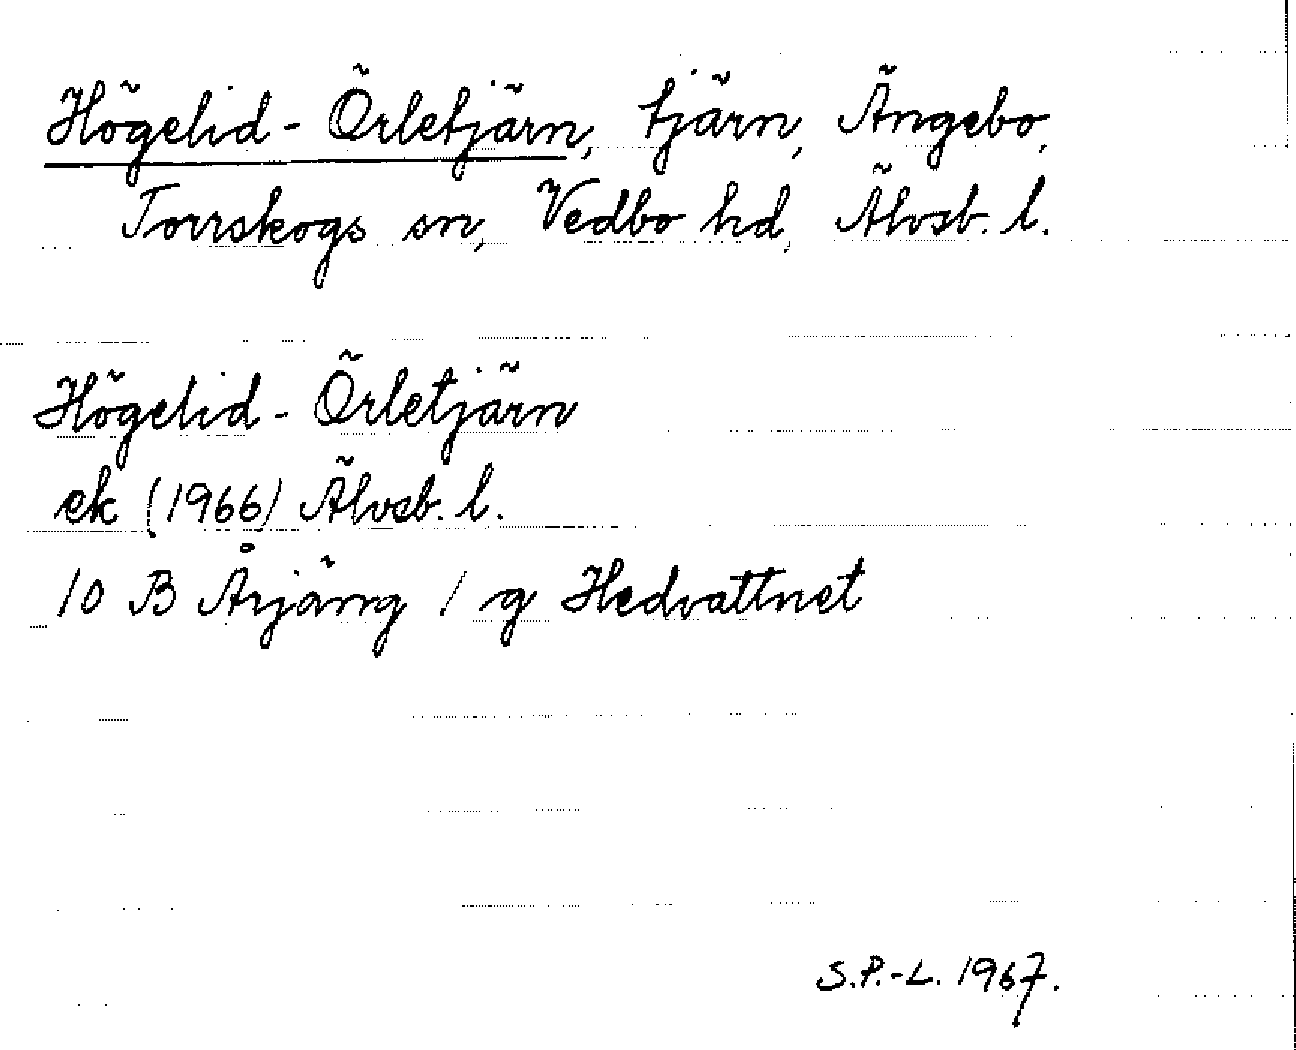 Högelid-Örletjärn, tjärn, Ängebo,
Torrskogs sn, Vedbo hd, Älvsb. l.
Högelid-Örletjärn
ek (1966) Älvsb. l.
10 B Årjäng / g Hedvattnet
S.P.-L. 1967.